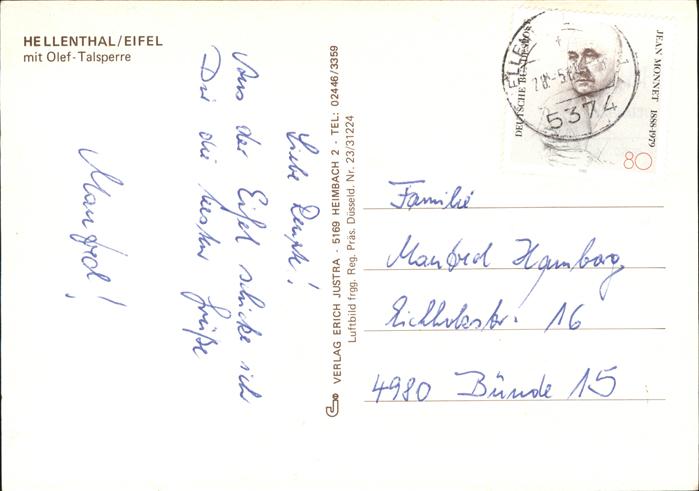 HELLENTHAL/EIFEL
mit Olef-Talsperre
Liebe
Aus der Eifel schicke ich
Dir die besten Grüße
Manfred!
VERLAG ERICH JUSTRA - 5169 HEIMBACH 2 - TEL: 02446/3359
Luftbild frgg. Reg. Präs. Düsseld. Nr. 23/31224
DEUTSCHE BUNDESPOST
JEAN MONNET 1888-1979
80
5374
Familie
Manfred Hamborg
Eichholzstr. 16
4980 Bünde 15